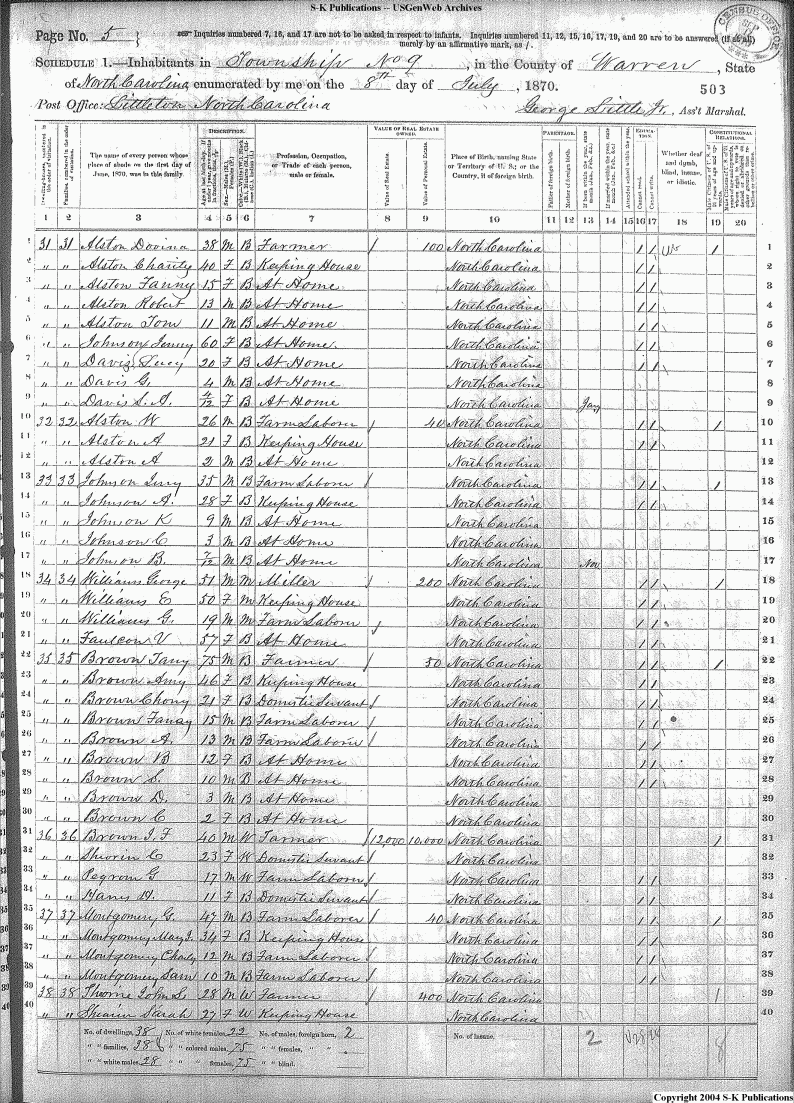 S-K Publications -- USGenWeb Archives
Page No. 5 Inquiries numbered 7, 16, and 17 are not to be asked in respect to infants. Inquiries numbered 11, 12, 15, 16, 17, 19, and 20 are to be answered (if at all)
merely by an affirmative mark, as /.
CENSUS OFFICE
SCHEDULE 1.—Inhabitants in Township No 9, in the County of Warren, State
of North Carolina enumerated by me on the 8th day of July, 1870. 503
Post Office: Littleton North Carolina George Little Jr., Ass't Marshal.
DESCRIPTION. VALUE OF REAL ESTATE OWNED. PARENTAGE. EDUCATION. CONSTITUTIONAL RELATIONS.
The name of every person whose place of abode on the first day of June, 1870, was in this family. Profession, Occupation, or Trade of each person, male or female. Value of Real Estate. Value of Personal Estate. Place of Birth, naming State or Territory of U. S.; or the Country, if of foreign birth. Father of foreign birth. Mother of foreign birth. Attended school within the year. Cannot read. Cannot write. Whether deaf and dumb, blind, insane, or idiotic.
1 2 3 4 5 6 7 8 9 10 11 12 13 14 15 16 17 18 19 20
1 31 31 Alston Dovina 38 M B Farmer / 100 North Carolina / / / 1
2 " " Alston Charity 40 F B Keeping House North Carolina / / 2
3 " " Alston Fanny 15 F B At Home North Carolina / / 3
4 " " Alston Robert 13 M B At Home North Carolina / / 4
5 " " Alston Tom 11 M B At Home North Carolina / / 5
6 " " Johnson Jenney 60 F B At Home North Carolina / / 6
7 " " Davis Lucy 20 F B At Home North Carolina / / 7
8 " " Davis G. 4 M B At Home North Carolina 8
9 " " Davis S. A. 4/12 F B At Home North Carolina Jany 9
10 32 32 Alston W 26 M B Farm Laborer / 40 North Carolina / / / 10
11 " " Alston A 21 F B Keeping House North Carolina / / 11
12 " " Alston A 2 M B At Home North Carolina 12
13 33 33 Johnson 35 M B Farm Laborer / North Carolina / / / 13
14 " " Johnson A. 28 F B Keeping House North Carolina / / 14
15 " " Johnson K 9 M B At Home North Carolina 15
16 " " Johnson C 3 M B At Home North Carolina 16
17 " " Johnson B. 7/12 M B At Home North Carolina Nov 17
18 34 34 Williams George 51 M M Miller / 200 North Carolina / / / 18
19 " " Williams E 50 F M Keeping House North Carolina / / 19
20 " " Williams G. 19 M M Farm Laborer / North Carolina / / 20
21 " " Faulcon V 57 F B At Home North Carolina / / 21
22 35 35 Brown 75 M B Farmer / 50 North Carolina / / / 22
23 " " Brown Amy 46 F B Keeping House North Carolina / / 23
24 " " Brown 21 F B Domestic Servant / North Carolina / / 24
25 " " Brown 15 M B Farm Laborer / North Carolina / / 25
26 " " Brown A. 13 M B Farm Laborer / North Carolina / / 26
27 " " Brown B 12 F B At Home North Carolina / / 27
28 " " Brown S. 10 M B At Home North Carolina / / 28
29 " " Brown D. 3 M B At Home North Carolina 29
30 " " Brown C 2 F B At Home North Carolina 30
31 36 36 Brown J. F 40 M W Farmer / 12,000 10,000 North Carolina / 31
32 " " C 23 F W Domestic Servant / North Carolina 32
33 " " Pegrom G 17 M W Farm Laborer / North Carolina / / 33
34 " " H. 11 F B Domestic Servant / North Carolina / / 34
35 37 37 Montgomery G. 47 M B Farm Laborer / 40 North Carolina / / / 35
36 " " Montgomery May J. 34 F B Keeping House North Carolina / / 36
37 " " Montgomery Charly 12 M B Farm Laborer / North Carolina / / 37
38 " " Montgomery Sam 10 M B Farm Laborer / North Carolina / / 38
39 38 38 Thorne John S. 28 M W Farmer / 400 North Carolina / 39
40 " " Shearin Sarah 27 F W Keeping House North Carolina 40
No. of dwellings, 38 No. of white females, 22 No. of males, foreign born, 2 No. of insane, 2 8
" " families, 38 " " colored males, 75 " " females, " "
" " white males, 28 " " " females, 75 " " blind.
Copyright 2004 S-K Publications